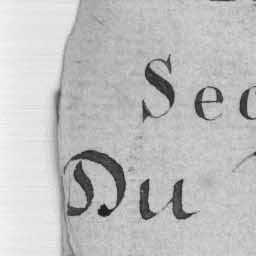 Sec
Du